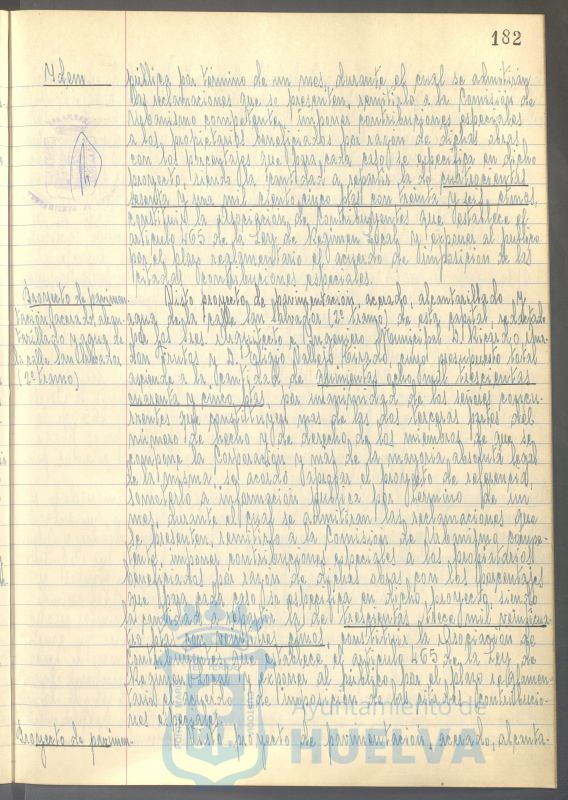 182
Idem
pública por término de un mes, durante el cual se admitirán
las reclamaciones que se presenten, remitirlo a la Comisión de
Urbanismo competente, imponer contribuciones especiales
a los propietarios beneficiados por razón de dichas obras
con los porcentajes que para cada caso se especifica en dicho
proyecto, siendo la cantidad a repartir la de cuatrocientas
sesenta y una mil ciento cinco ptas con treinta y seis ctmos,
constituir la Asociación de Contribuyentes que establece el
artículo 465 de la Ley de Régimen Local y exponer al público
por el plazo reglamentario el acuerdo de imposición de las
citadas contribuciones especiales.
Proyecto de pavimen-
tación, acerado, alcan-
tarillado y agua de la
calle San Salvador
(2º tramo)
Visto proyecto de pavimentación, acerado, alcantarillado y
agua de la calle San Salvador (2º tramo) de esta capital, redactado
por los Sres. Arquitecto e Ingeniero Municipal D. Ricardo
y D. Vallejo cuyo presupuesto total
asciende a la cantidad de quinientas ocho mil trescientas
cuarenta y cinco ptas, por unanimidad de los señores concu-
rrentes que constituyen mas de las dos terceras partes del
número de hecho y de derecho, de los miembros de que se
compone la Corporación y más de la mayoría absoluta legal
de la misma, se acordó aprobar el proyecto de referencia,
someterlo a información pública por término de un
mes, durante el cual se admitirán las reclamaciones que
se presenten, remitirlo a la Comisión de Urbanismo compe-
tente, imponer contribuciones especiales a los propietarios
beneficiados por razón de dichas obras, con los porcentajes
que para cada caso se especifica en dicho proyecto, siendo
la cantidad a repartir la de trescientas trece mil
ptas con ctmos, constituir la Asociación de
Contribuyentes que establece el artículo 465 de la Ley de
Régimen Local y exponer al público por el plazo reglamen-
tario el acuerdo de imposición de las citadas contribucio-
nes especiales.
Proyecto de pavimen-
Visto proyecto de pavimentación, acerado, alcanta-
Ayuntamiento de
HUELVA